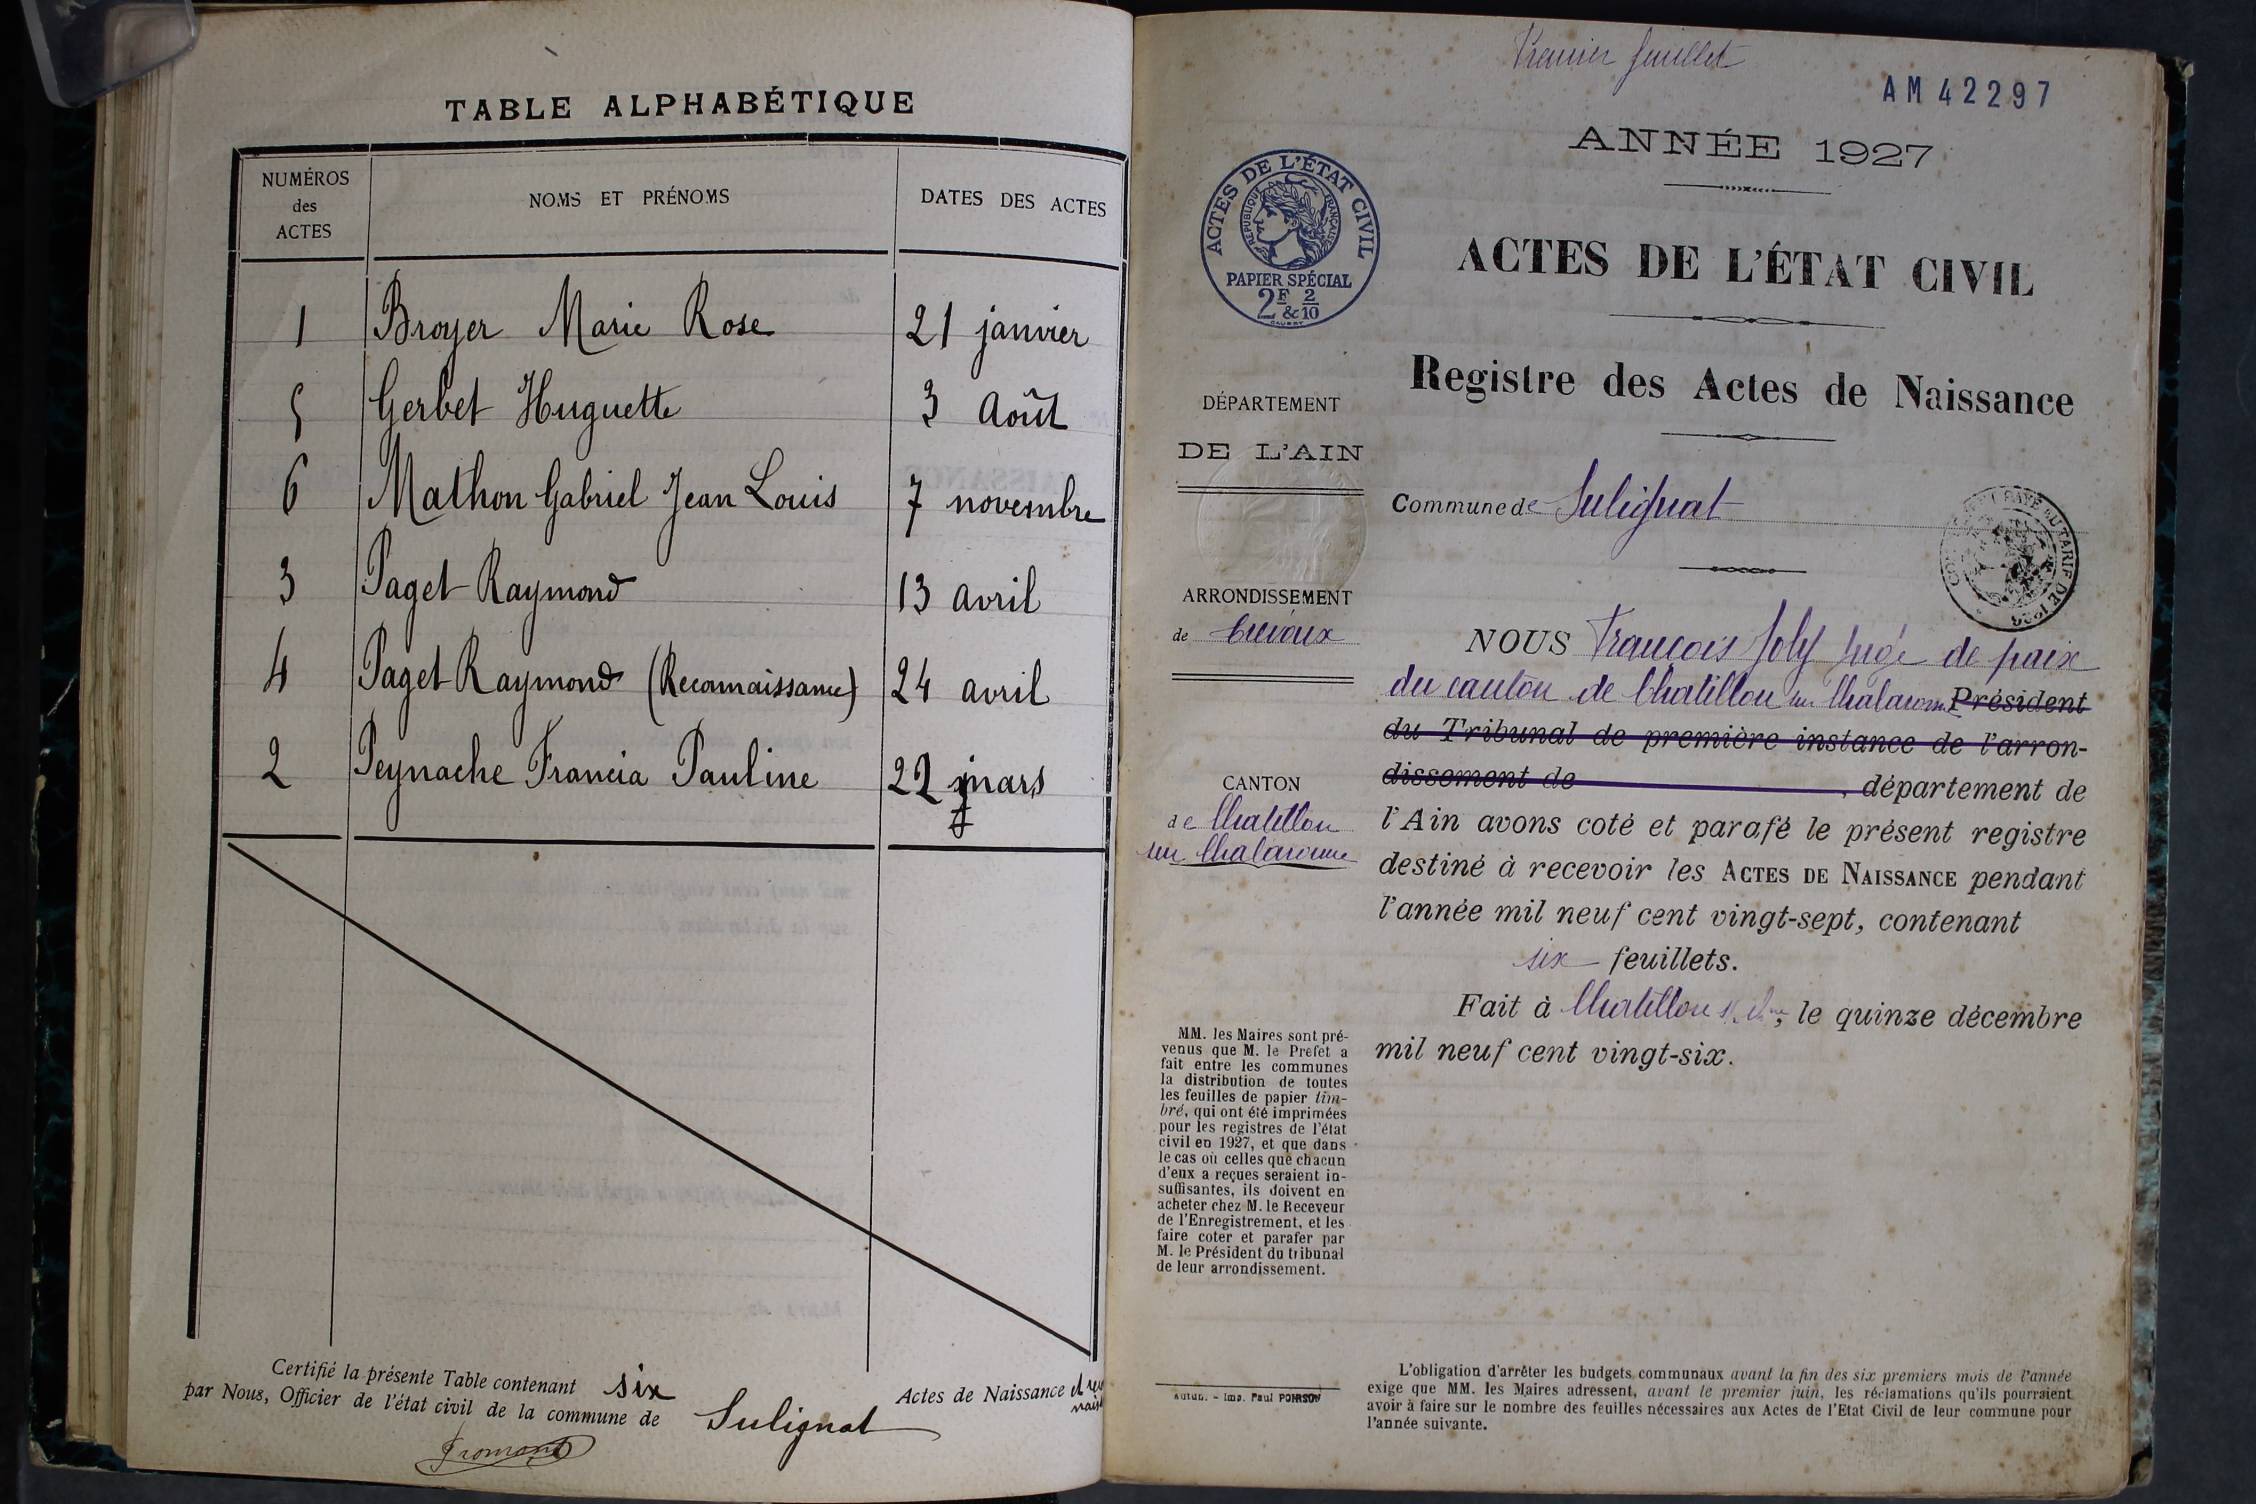 TABLE ALPHABÉTIQUE
NUMÉROS des ACTES NOMS ET PRÉNOMS DATES DES ACTES
1 Broyer Marie Rose 21 janvier
5 Gerbet Huguette 3 Août
6 Mathon Gabriel Jean Louis 7 novembre
3 Paget Raymond 13 avril
4 Paget Raymond (Reconnaissance) 24 avril
2 Peynache Francia Pauline 22 mars
Certifié la présente Table contenant six Actes de Naissance
par Nous, Officier de l'état civil de la commune de Sulignat
Fromont
Premier feuillet
AM 42297
ANNÉE 1927
ACTES DE L'ÉTAT CIVIL
RÉPUBLIQUE FRANÇAISE
PAPIER SPÉCIAL
2F & 2/10
ACTES DE L'ÉTAT CIVIL
Registre des Actes de Naissance
DÉPARTEMENT
DE L'AIN
Commune de Sulignat
ARRONDISSEMENT
de Trévoux
CANTON
de Chatillon
sur Chalaronne
NOUS François Joly Juge de paix
du canton de Chatillon sur Chalaronne Président
du Tribunal de première instance de l'arron-
dissement de , département de
l'Ain avons coté et parafé le présent registre
destiné à recevoir les ACTES DE NAISSANCE pendant
l'année mil neuf cent vingt-sept, contenant
six feuillets.
Fait à Chatillon , le quinze décembre
mil neuf cent vingt-six.
MM. les Maires sont pré-
venus que M. le Prefet a
fait entre les communes
la distribution de toutes
les feuilles de papier tim-
bré, qui ont été imprimées
pour les registres de l'état
civil en 1927, et que dans
le cas où celles que chacun
d'eux a reçues seraient in-
suffisantes, ils doivent en
acheter chez M. le Receveur
de l'Enregistrement, et les
faire coter et parafer par
M. le Président du tribunal
de leur arrondissement.
Autun. - Imp. Paul POIRSON
L'obligation d'arrêter les budgets communaux avant la fin des six premiers mois de l'année
exige que MM. les Maires adressent, avant le premier juin, les réclamations qu'ils pourraient
avoir à faire sur le nombre des feuilles nécessaires aux Actes de l'Etat Civil de leur commune pour
l'année suivante.